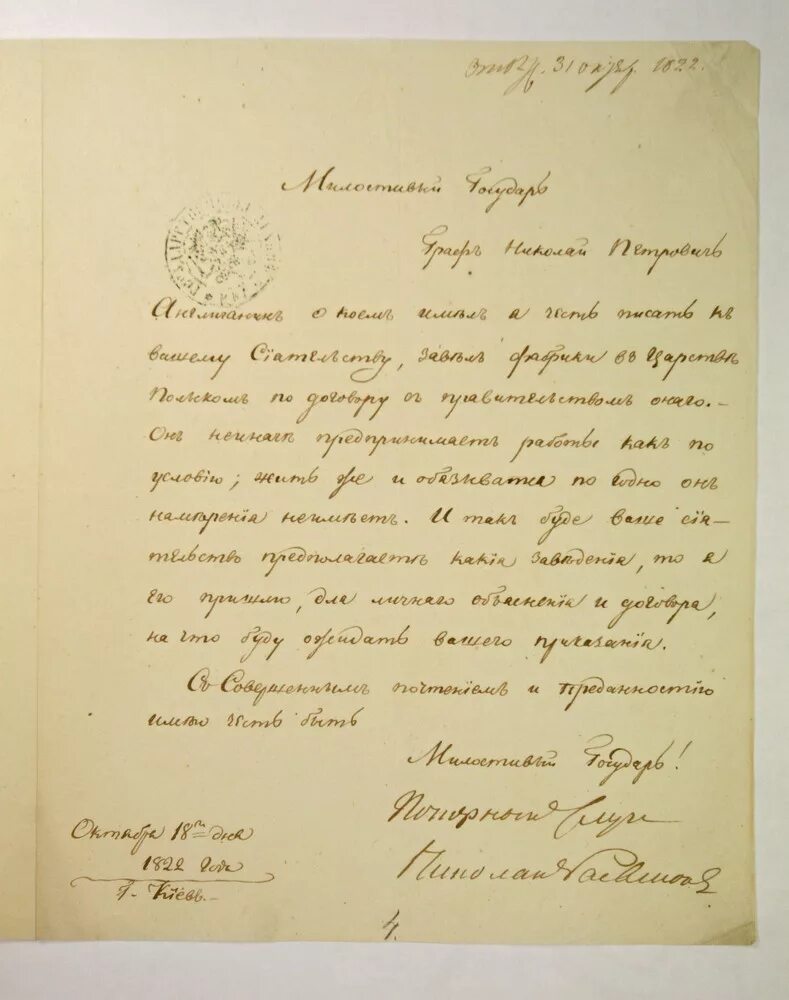 31 октяб. 1822.
Милостивый Государь
Графъ Николай Петровичь
Англичанинъ о коемъ имѣлъ я честь писать къ
вашему Сіятельству, завѣлъ фабрики въ Царствѣ
Польскомъ по договору съ правительствомъ онаго.-
Онъ неиначе предпринимаетъ работы какъ по
условію; жить же и обязыватся по годно онъ
намѣренія неимѣетъ. И такъ буде ваше сія-
тельство предполагаетъ какія заведенія, то я
его пришлю, для личнаго объясненія и договора,
на что буду ожидать вашего приказанія.
Съ Совершеннымъ почтеніемъ и преданностію
имѣю честь быть
Милостивый Государь!
Покорный слуга
Николай
Октября 18го дня
1822 года
Г. Кіевъ.-
4.